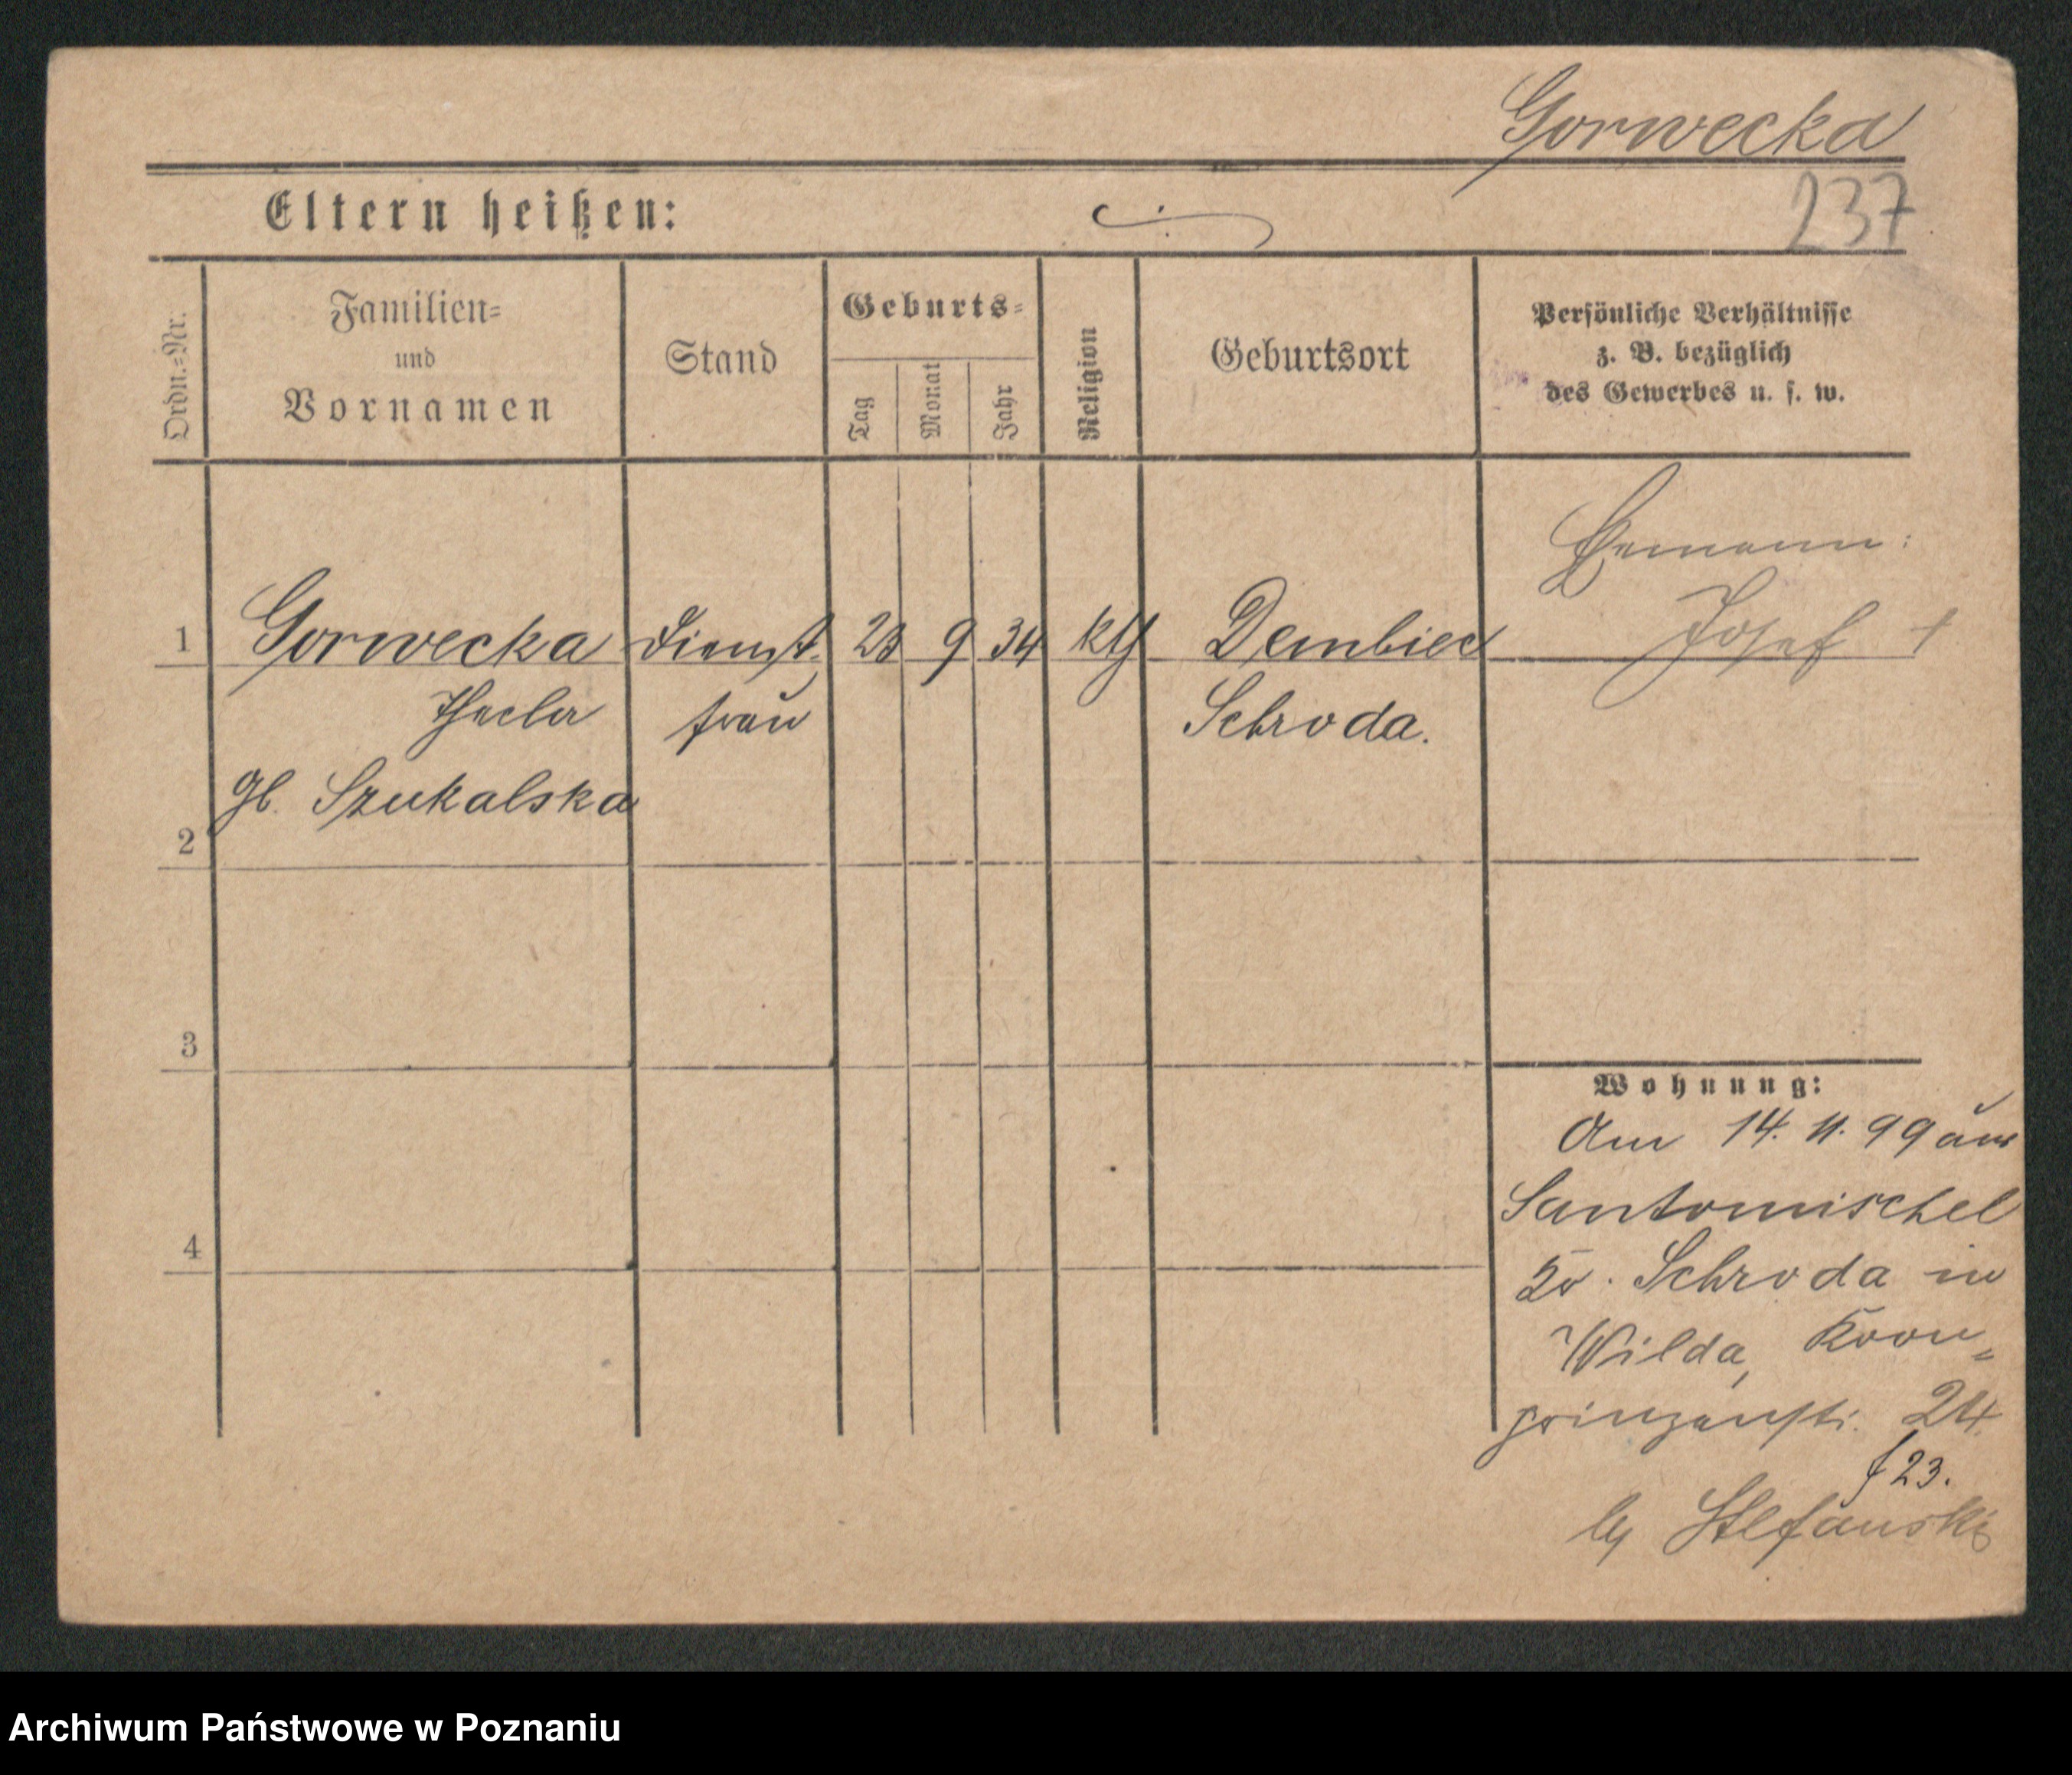 Gorwecka
Eltern heißen:
237
Ordn.=Nr.
Familien=
und
Vornamen
Stand
Geburts=
Tag
Monat
Jahr
Religion
Geburtsort
Persönliche Verhältnisse
z. B. bezüglich
des Gewerbes u. s. w.
Ehemann:
Josef †
1 Gorwecka Dienst- 9 34 kth Dembiec
Thecla frau Schroda.
gb. Szukalska
2
3
4
Wohnung:
Am 14. 11. 99 aus
Santomischel
Kr. Schroda in
Wilda, Kron=
prinzenstr. 24.
23.
by Stefanski
Archiwum Państwowe w Poznaniu